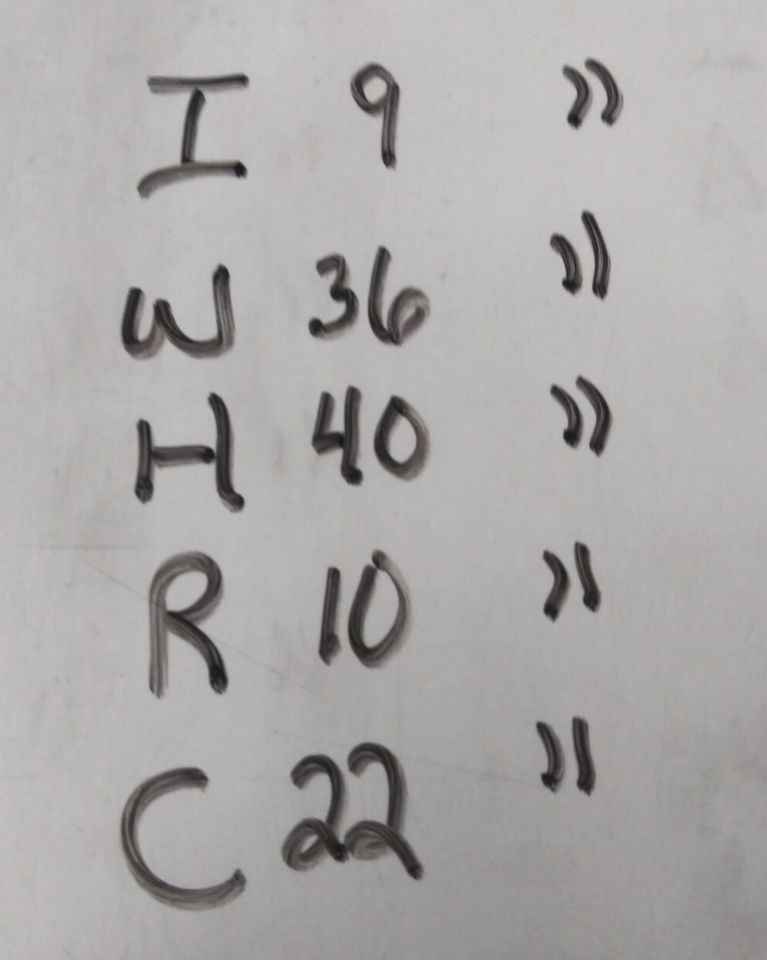 I 9 "
W 36 "
H 40 "
R 10 "
C 22 "